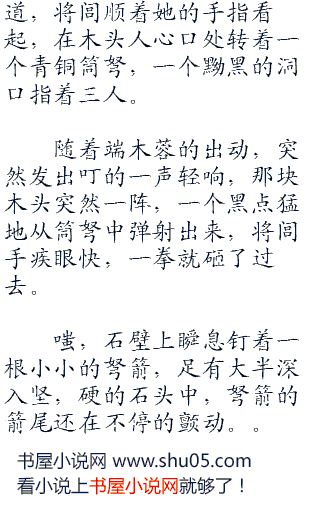 道，将闾顺着她的手指看
起，在木头人心口处转着一
个青铜筒弩，一个黝黑的洞
口指着三人。
随着端木蓉的出动，突
然发出叮的一声轻响，那块
木头突然一阵，一个黑点猛
地从筒弩中弹射出来，将闾
手疾眼快，一拳就砸了过
去。
嗤，石壁上瞬息钉着一
根小小的弩箭，足有大半深
入坚，硬的石头中，弩箭的
箭尾还在不停的颤动。。
书屋小说网 www.shu05.com
看小说上书屋小说网就够了！